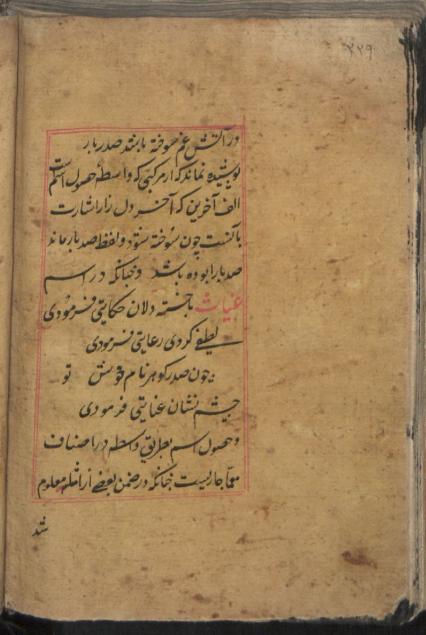 ۷۲۹
در آتش غم سوخته یابند صد بار
پوشیده نماند که از مرکبی که واسطهٔ حصول اسم است
الف آخرین که آخر دل زار اشارت
بآنست چون سوخته شود و لفظ صد بار ماند
صد بار ابوده باشد و چنانکه در اسم
غیاث با خسته دلان حکایتی فرمودی
لطفی کردی رعایتی فرمودی
چون صدر کوهر نام خویش تو
چشم نشان عنایتی فرمودی
و حصول اسم بطریق واسطه در اصناف
معما جاریست چنانکه در ضمن بعضی از امثله معلوم
شد